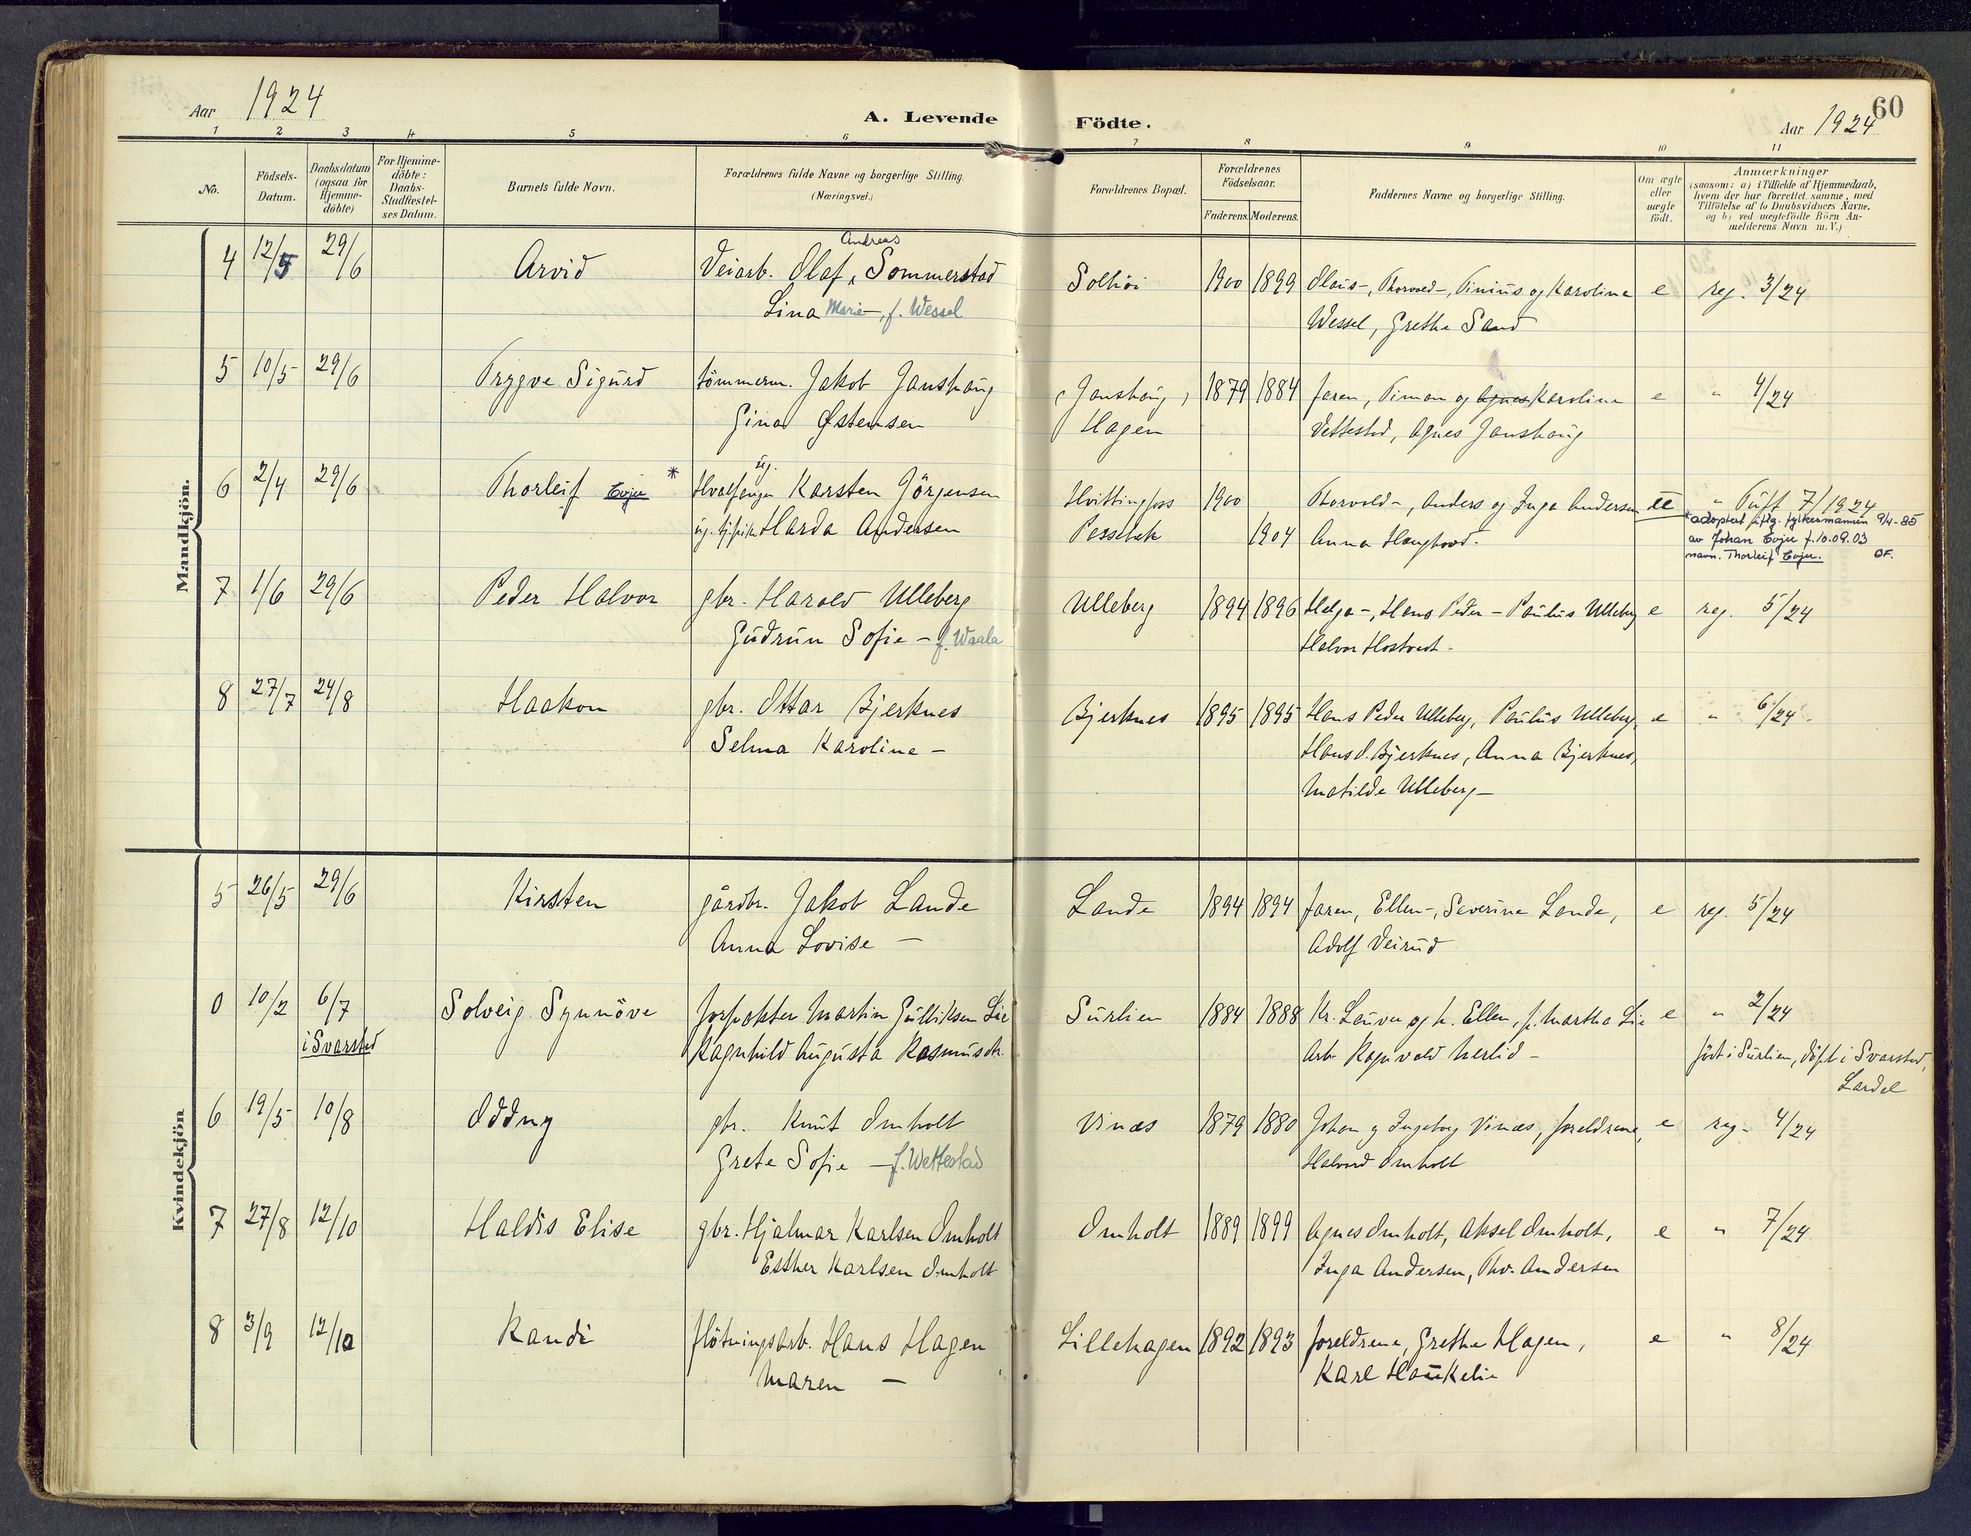 Aar 1924
A. Levende Födte.
Aar 1924
60
1 2 3 4 5 6 7 8 9 10 11
No.
Födsels-Datum.
Daabsdatum (ogsaa for Hjemme-döbte)
For Hjemme-döbte: Daabs-Stadfæstel-ses Datum.
Barnets fulde Navn.
Forældrenes fulde Navne og borgerlige Stilling. (Næringsvei.)
Forældrenes Bopæl.
Forældrenes Födselsaar.
Faderens. Moderens.
Faddernes Navne og borgerlige Stilling.
Om ægte eller uægte födt.
Anmærkninger
(saasom: a) i Tilfælde af Hjemmedaab,
hvem der har forrettet samme, med
Tilföielse af to Daabsvidners Navne.
og b) ved uægtefödte Börn An-
melderens Navn m. V.)
Mandkjön.
4 12/5 29/6 Arvid Veiarb. Olaf Andreas Sommerstad Solhöi 1900 1899 Olaus-, Thorvald-, Tinius og Karolina e reg. 3/24
Lina Marie -, f. Wessel Wessel, Grethe Sand
5 10/5 29/6 Trygve Sigurd tömmerm. Jakob Janshaug Janshaug, 1879 1884 faren, Timan og Agnes Karolina e " 4/24
Gina Østensen Hagen Vettestad, Agnes Janshaug
6 2/4 29/6 Thorleif Evju * Hvalfanger ug. Karsten Jörgensen Hvittingfoss 1900 Thorvald-, Anders og Inga Andersen ue " Tuft 7/1924
ug. tj.pike Harda Andersen Passebæk 1904 Anna Haughovd.
* adoptert iflg. fylkesmannen 9/4-85
av Johan Evju f. 10.09.03
navn. Thorleif Evju. OF.
7 1/6 29/6 Peder Halvor gbr. Harald Ulleberg Ulleberg 1894 1896 Helga-, Hans Peder - Paulus Ulleberg e reg. 5/24
Gudrun Sofie - f. Waala Halvor Hostvedt.
8 27/7 24/8 Haakon gbr. Ottar Bjerknes Bjerknes 1895 1895 Hans Peder Ulleberg, Paulus Ulleberg, e " 6/24
Selma Karoline - Hans O. Bjerknes, Anna Bjerknes,
Matilde Ulleberg -
Kvindekjön
5 26/5 29/6 Kirsten gårdbr. Jakob Lande Lande 1894 1894 faren, Ellen-, Severine Lande, e reg. 5/24
Anna Lovise - Adolf Veirud
0 10/2 6/7 Solveig Synnöve forpakter Martin Gulliksen Lie Surlien 1884 1888 Kr. Lauve og h. Ellen, f. Martha Lie e " 2/24
i Svarstad Ragnhild Augusta Rasmusdtr. Arb. Ragnvald Herlid - födt i Surlien, döpt i Svarstad,
Lardal
6 19/5 10/8 Oddny gbr. Knut Omholt Vinæs 1879 1880 Johan og Ingeborg Vinæs, foreldrene, e reg. 4/24
Grete Sofie - f. Wettestad Halvord Omholt
7 27/8 12/10 Haldis Elise gbr. Hjalmar Karlsen Omholt Omholt 1889 1899 Agnes Omholt, Aksel Omholt, e " 7/24
Esther Karlsen Omholt Inga Andersen, Thv. Andersen
8 3/9 12/10 Randi flötningsarb. Hans Hagen Lillehagen 1892 1893 foreldrene, Grethe Hagen, e " 8/24
Maren - Karl Haukelie